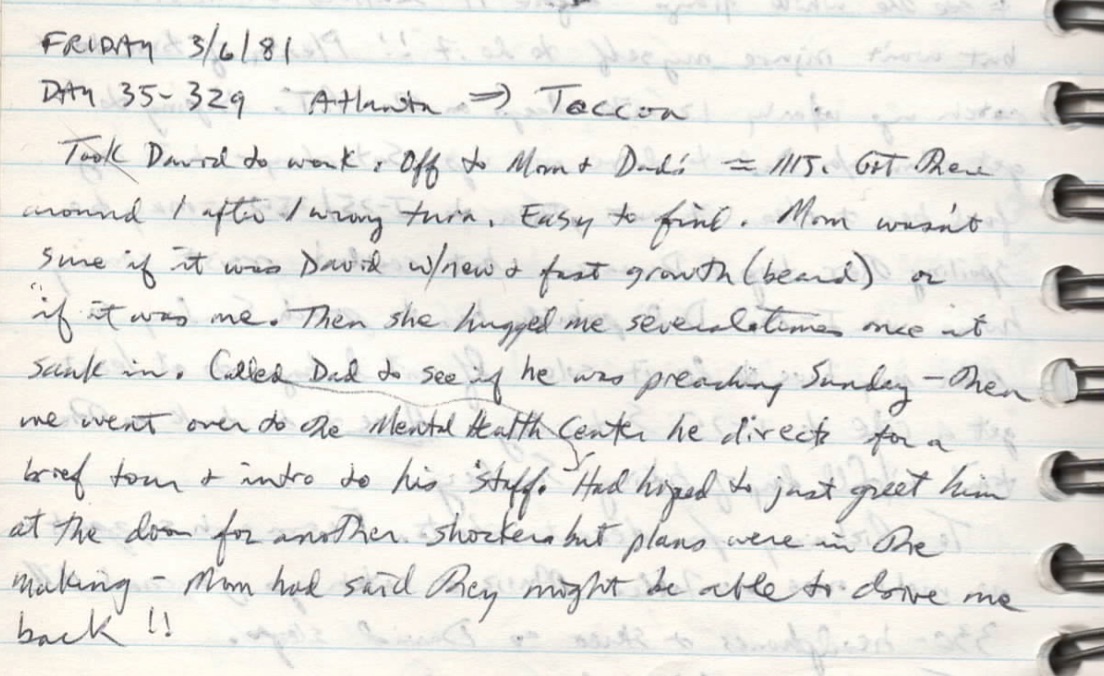 FRIDAY 3/6/81
DAY 35-329 Atlanta ⇒ Toccoa
Took David to work. Off to Mom + Dad's ≈ 1115. Got there
around 1 after 1 wrong turn. Easy to find. Mom wasn't
sure if it was David w/new + fast growth (beard) or
if it was me. Then she hugged me several times once it
sank in. Called Dad to see if he was preaching Sunday - then
we went over to the Mental Health Center he directs for a
brief tour + intro to his staff. Had hoped to just greet him
at the door for another shocker but plans were in the
making - Mom had said they might be able to drive me
back !!